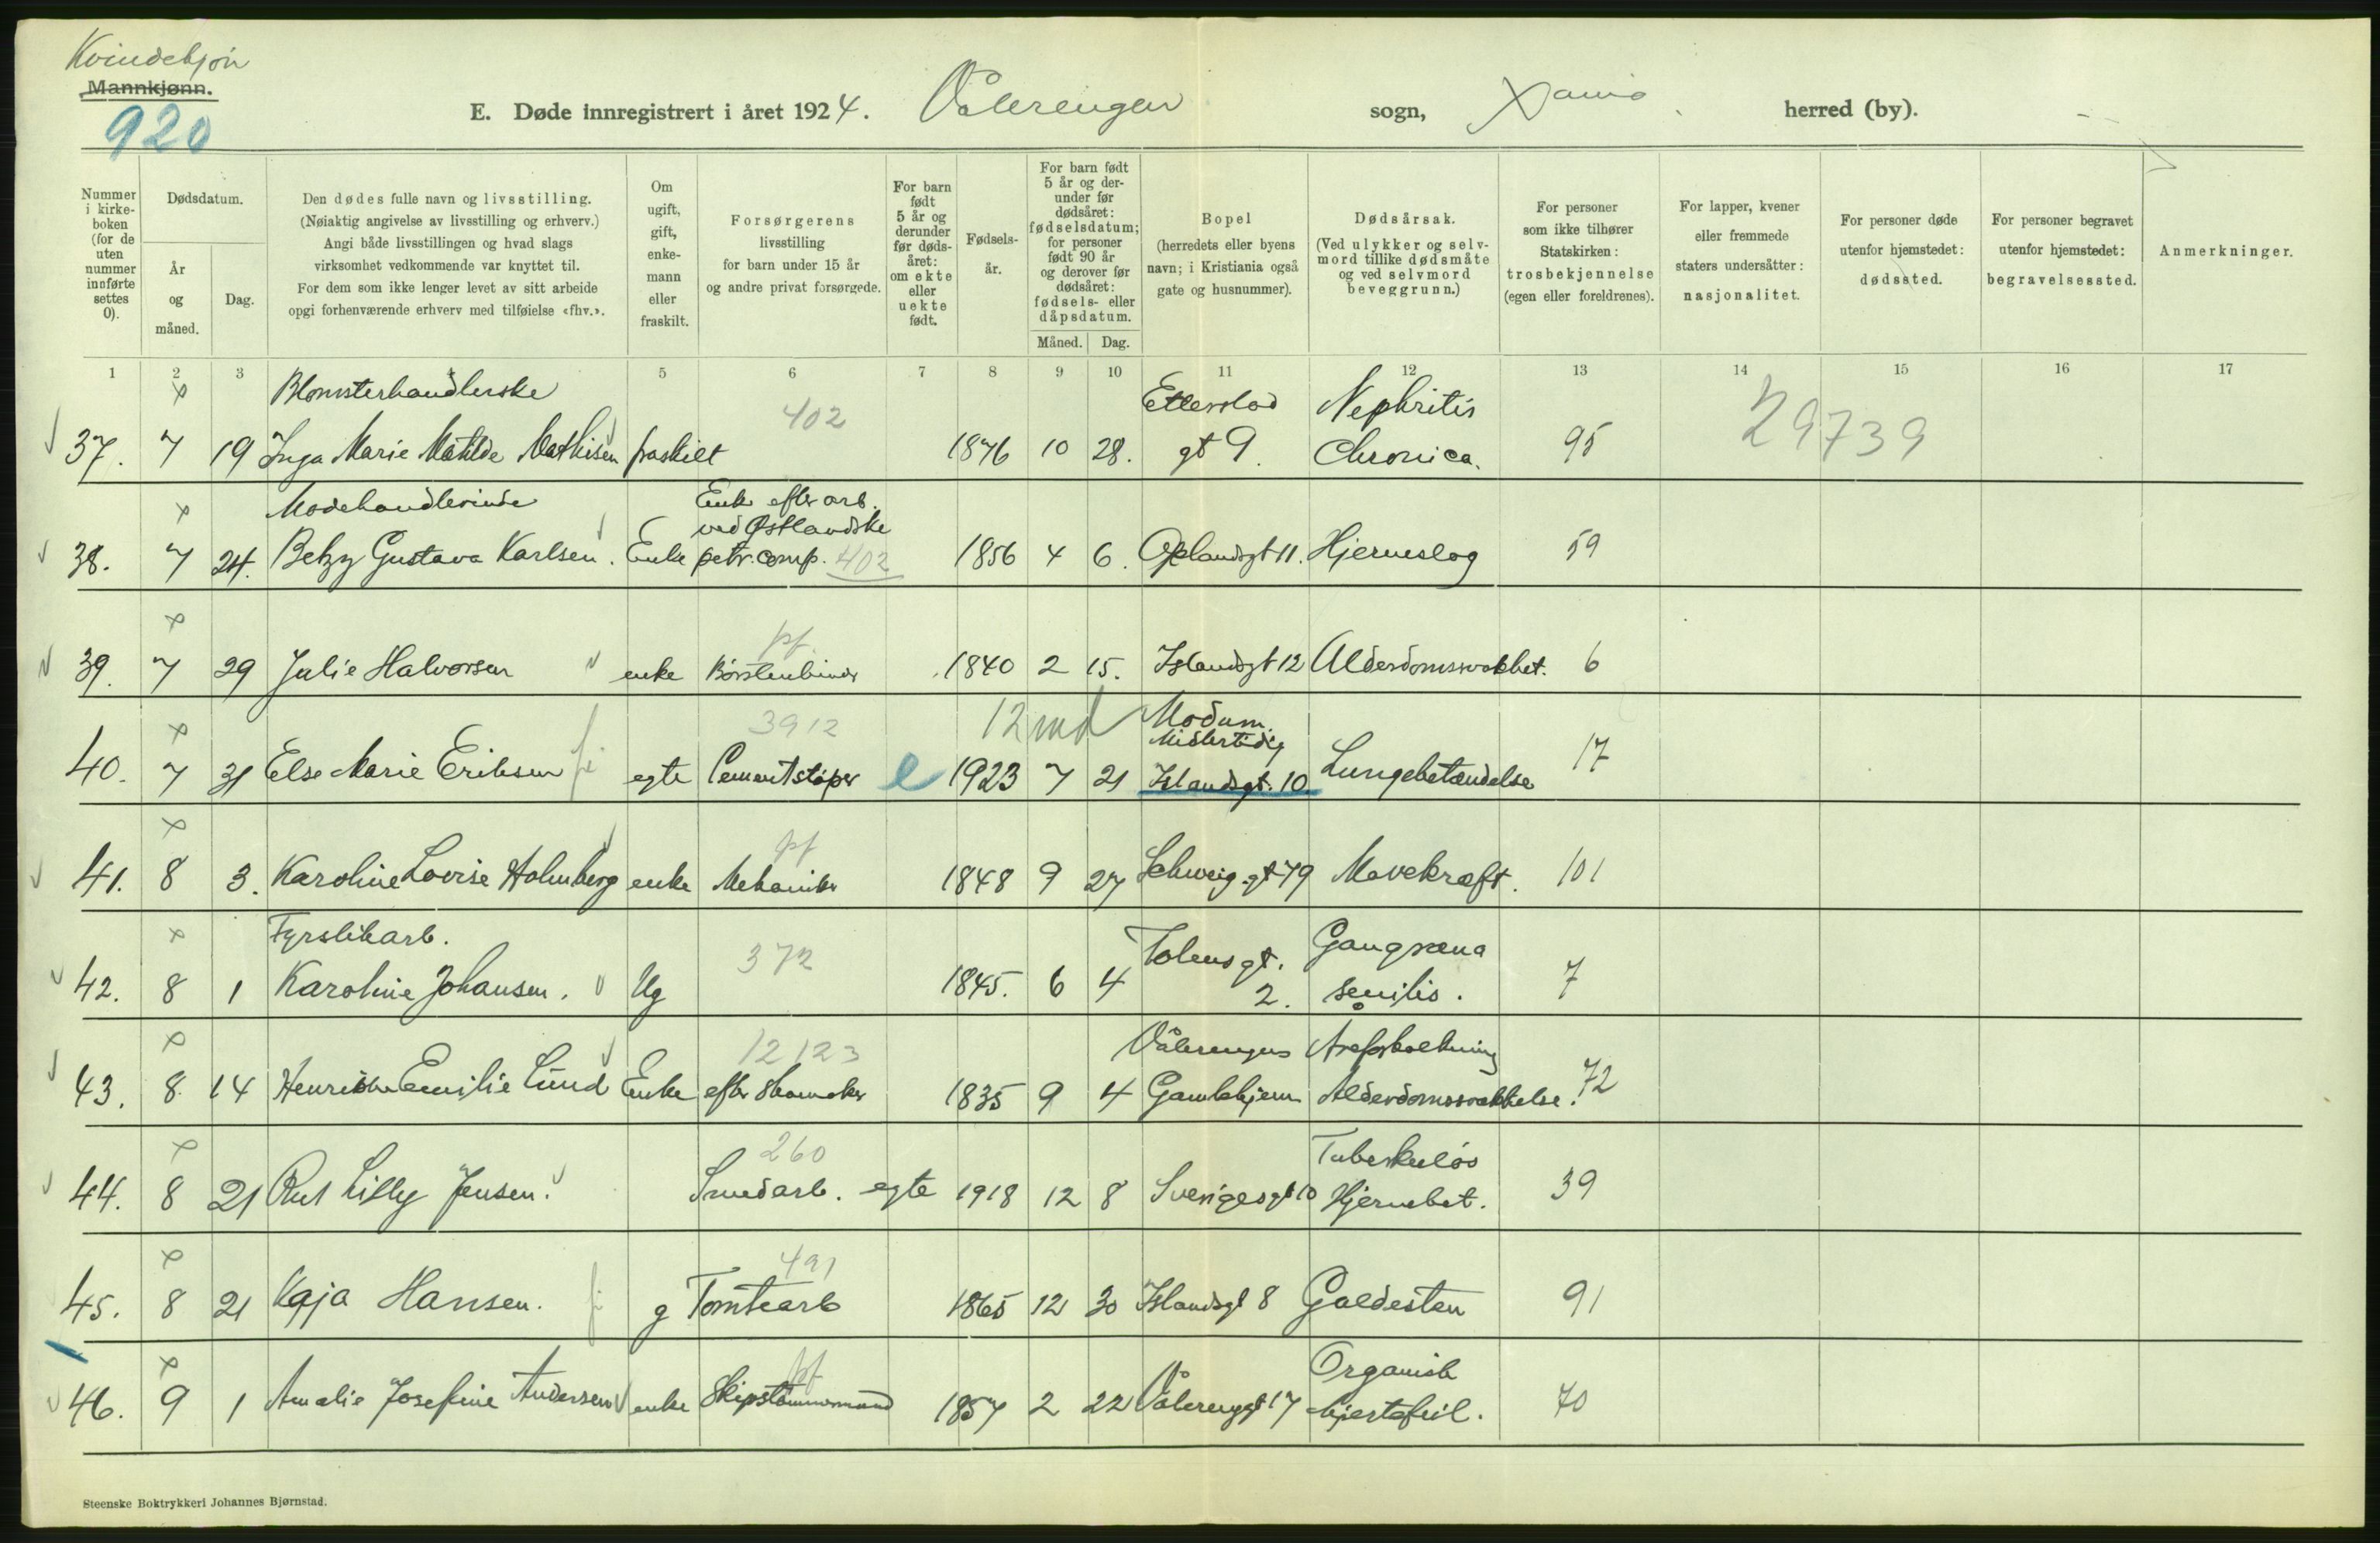 Kvindekjøn
Mannkjønn.
920
E. Døde innregistrert i året 1924. Vålerengen sogn, Xania herred (by).
Nummer i kirkeboken (for de uten nummer innførte settes 0).
Dødsdatum.
År og måned.
Dag.
Den dødes fulle navn og livsstilling.
(Nøiaktig angivelse av livsstilling og erhverv.)
Angi både livsstillingen og hvad slags
virksomhet vedkommende var knyttet til.
For dem som ikke lenger levet av sitt arbeide
opgi forhenværende erhverv med tilføielse «fhv.».
Om ugift, gift, enkemann eller fraskilt.
Forsørgerens
livsstilling
for barn under 15 år
og andre privat forsørgede.
For barn født 5 år og derunder før dødsåret: om ekte eller uekte født.
Fødselsår.
For barn født 5 år og derunder før dødsåret: fødselsdatum; for personer født 90 år og derover før dødsåret: fødsels- eller dåpsdatum.
Måned. Dag.
Bopel
(herredets eller byens
navn; i Kristiania også
gate og husnummer).
Dødsårsak.
(Ved ulykker og selvmord tillike dødsmåte og ved selvmord beveggrunn.)
For personer
som ikke tilhører
Statskirken:
trosbekjennelse
(egen eller foreldrenes).
For lapper, kvener
eller fremmede
staters undersåtter:
nasjonalitet.
For personer døde
utenfor hjemstedet:
dødssted.
For personer begravet
utenfor hjemstedet:
begravelsessted.
Anmerkninger.
1 2 3 5 6 7 8 9 10 11 12 13 14 15 16 17
Blomsterhandlerske 402 Etterstad Nephritis 29739
37. 7 19 Inga Marie Matilde Mathisen fraskilt 1876 10 28. gt 9. Chronica. 95
Modehandlerinde Enke efter arb. ved Østlandske
38. 7 24. Betzy Gustava Karlsen. Enke petr. comp. 402 1856 4 6. Oplandsgt 11. Hjerneslag 59
pf
39. 7 29 Julie Halvorsen enke Børstenbinder 1840 2 15. Islandsgt 12 Alderdomssvakhet. 6
3912 12 md Modum. Midlertidig
40. 7 31 Else Marie Eriksen egte Cementstøper e 1923 7 21 Islandsgt. 10. Lungebetændelse 17
pf
41. 8 3. Karoline Lovise Holmberg enke Mekaniker 1848 9 27 Schweig.gt 79 Mavekræft. 101
Fyrstikarb. 372 Tolensgt. Gangræna
42. 8 1 Karoline Johansen. Ug 1845. 6 4 2. senilis. 7
12123 Vålerengens Arefor­kalkning
43. 8 14 Henrikke Emilie Lund Enke efter skomaker 1835 9 4 Gamlehjem Alderdomssvakkelse. 72
260 Tuberkuløs
44. 8 21 Rut Lilly Jensen. Smedarb. egte 1918 12 8 Sverigesgt 10 Hjernebet. 39
491
45. 8 21 Kaja Hansen. g Tomtearb 1865 12 30 Islandsgt 8 Galdesten 91
pf Organisk
46. 9 1 Amalie Josefine Andersen enke Skipstømmermand 1857 2 22 Vålerenggt 17 hjertefeil. 70
Steenske Boktrykkeri Johannes Bjørnstad.